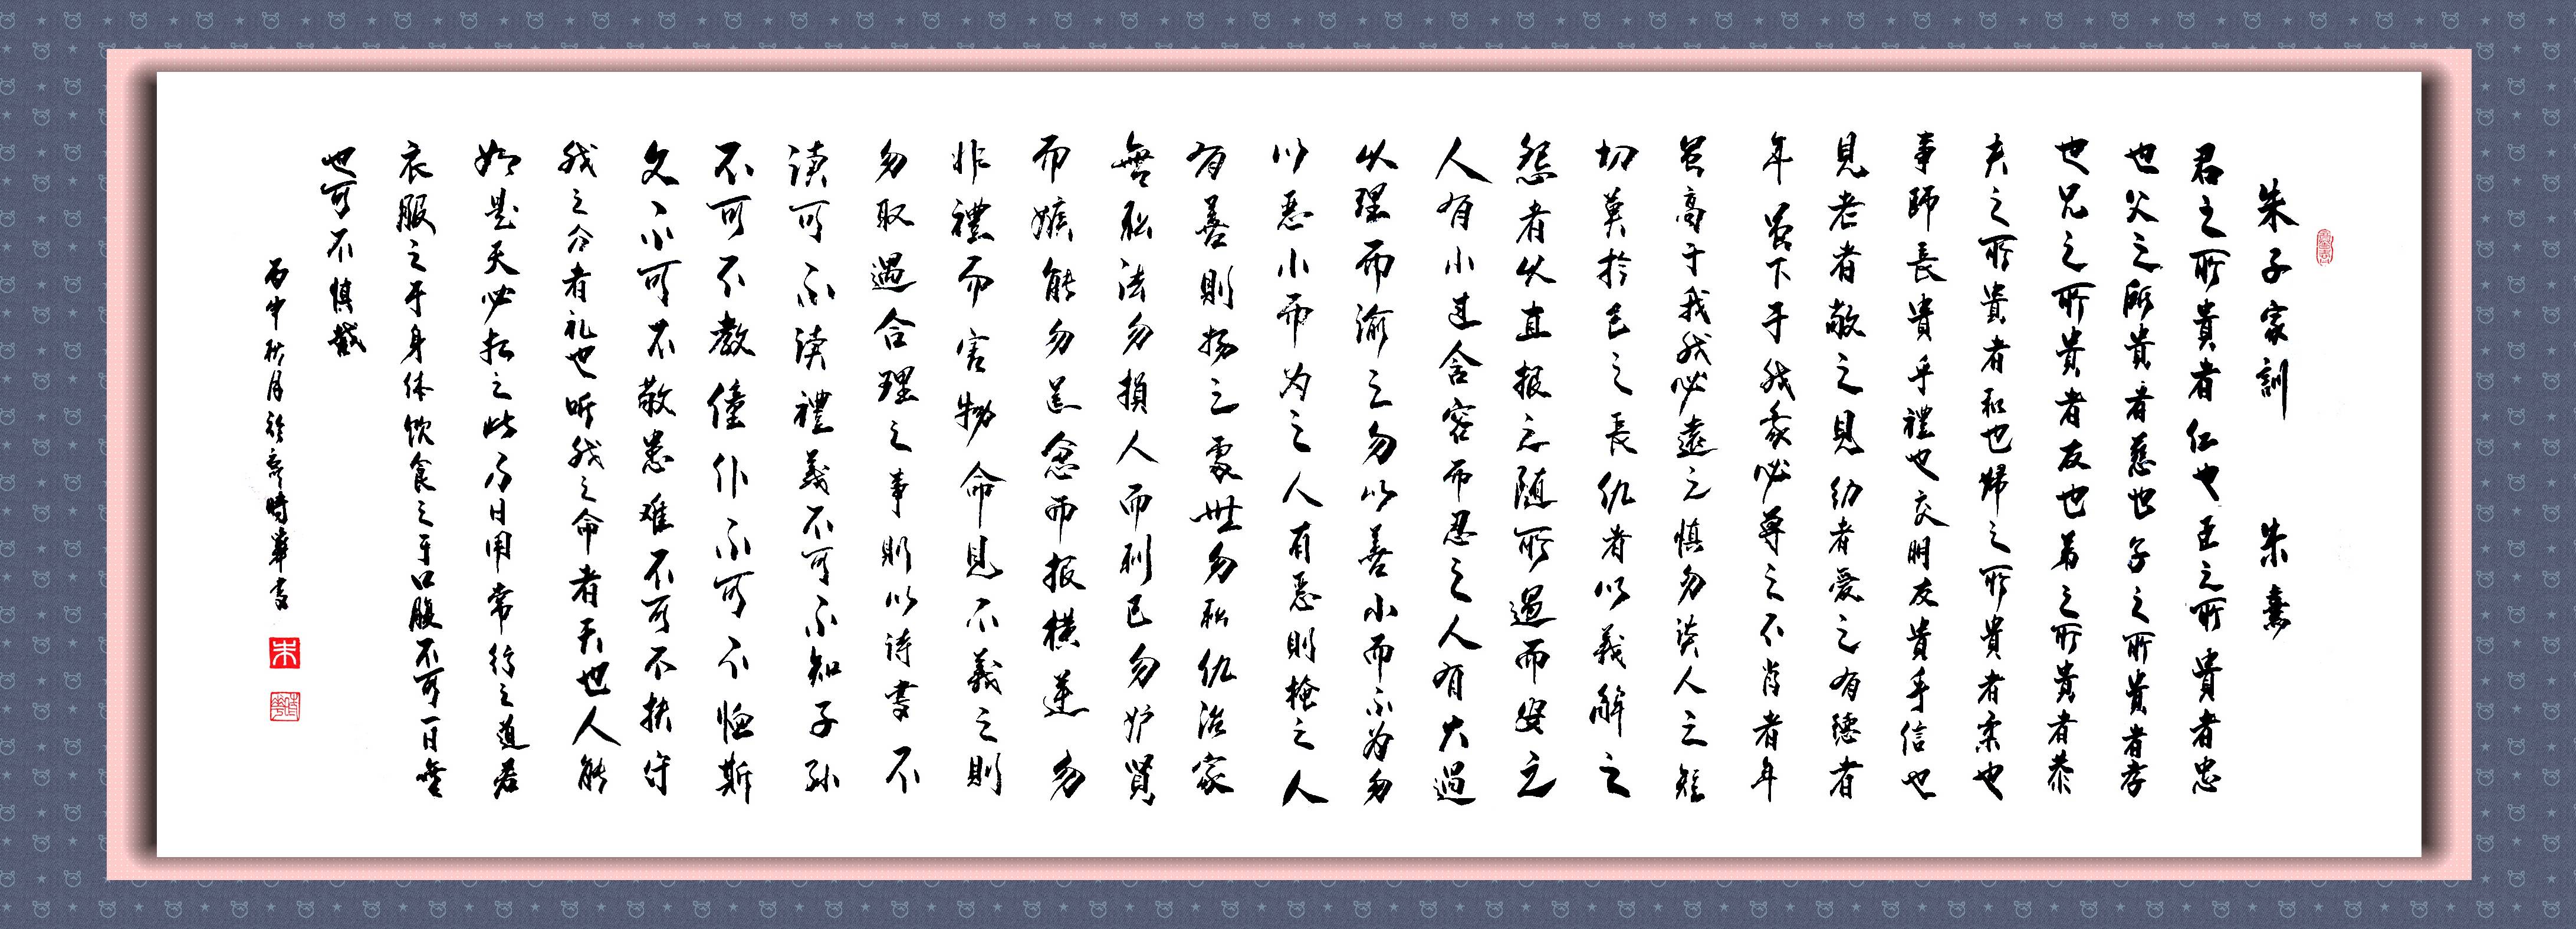 朱子家訓 朱熹
君之所貴者仁也臣之所貴者忠
也父之所貴者慈也子之所貴者孝
也兄之所貴者友也弟之所貴者恭
夫之所貴者和也婦之所貴者柔也
事師長貴乎禮也交朋友貴乎信也
見老者敬之見幼者愛之有德者
年虽下于我我必尊之不肖者年
虽高于我我必遠之慎勿谈人之短
切莫矜己之長仇者以義解之
怨者以直报之随所遇而安之
人有小过含容而忍之人有大過
以理而谕之勿以善小而不为勿
以恶小而为之人有恶則掩之人
有善則扬之處世勿私仇治家
無私法勿損人而利己勿妒賢
而嫉能勿逞忿而报横逆勿
非禮而害物命見不義之財
勿取遇合理之事則从诗書不
读可不读禮義不可不知子孙
不可不教僮仆不可不恤斯
文不可不敬患难不可不扶守
我之分者礼也听我之命者天也人能
如是天必相之此乃日用常行之道若
衣服之于身体饮食之于口腹不可一日無
也可不慎哉
丙申秋月 時華書
朱